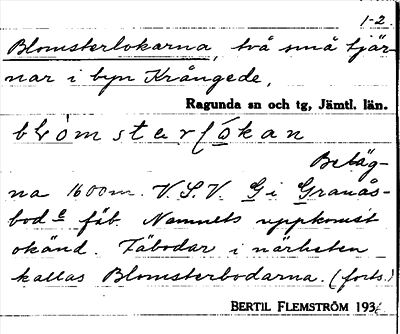 1-2.
Blomsterlokarna, två små tjär-
nar i byn Krångede,
Ragunda sn och tg, Jämtl. län.
Beläg-
na 1600m. V.S.V. G i Granås-
bod fäb. Namnets uppkomst
okänd. Fäbodar i närheten
kallas Blomsterbodarna. (forts.)
BERTIL FLEMSTRÖM 193